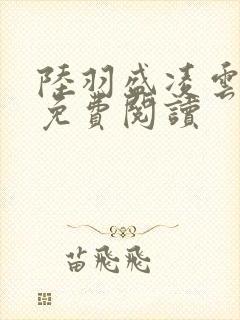 陸羽盛凌雲
免費閱讀
苗飛飛